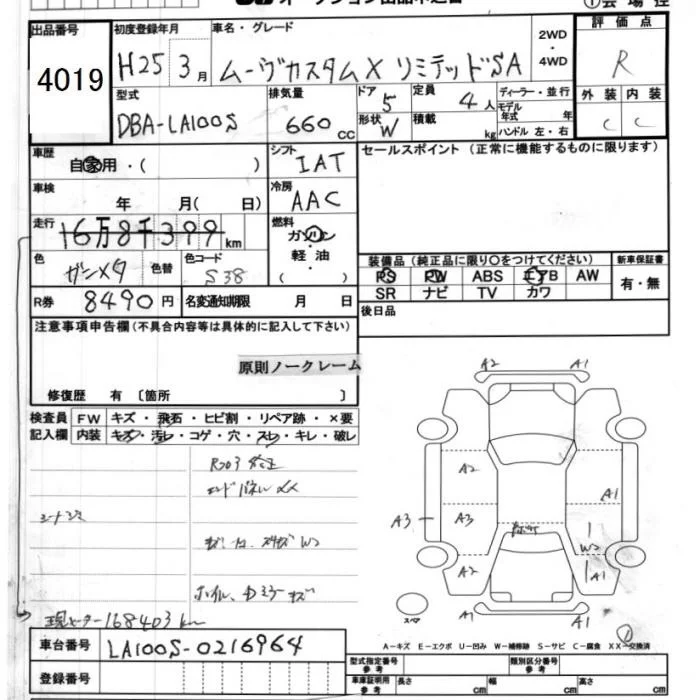 出品番号
4019
初度登録年月
H25 3月
車名・グレード
ムーヴカスタムX リミテッドSA
2WD
4WD
評価点
R
外装 内装
C C
型式
DBA-LA100S
排気量
660 cc
ドア 5
形状 W
定員 4人
積載 kg
ディーラー・並行
モデル年式 年
ハンドル 左・右
車歴
自家用・( )
シフト
IAT
セールスポイント(正常に機能するものに限ります)
車検
年 月( 日)
冷房
AAC
走行
16万8千399km
燃料
ガソリン
軽・油
( )
色
ガンメタ
色替
色コード
S38
R券 8490円
名変通知期限 月 日
装備品(純正品に限り○をつけてください)
PS PW ABS エアB AW
SR ナビ TV カワ
新車保証書
有・無
後日品
注意事項申告欄(不具合内容等は具体的に記入して下さい)
原則ノークレーム
修復歴 有〔箇所 〕
検査員記入欄
FW キズ・飛石・ヒビ割・リペア跡・×要
内装 キズ・汚レ・コゲ・穴・スレ・キレ・破レ
エンドパネルXX
W2
現メーター168403km
A2 A1
A2
A3 A3
A1
W2
A2 A1
A1 A1
A-キズ E-エクボ U-凹み W-補修跡 S-サビ C-腐食 XX-交換済
車台番号
LA100S-0216964
登録番号
型式指定番号
参考
類別区分番号
参考
車庫証明用
参考
長さ cm 幅 cm 高さ cm